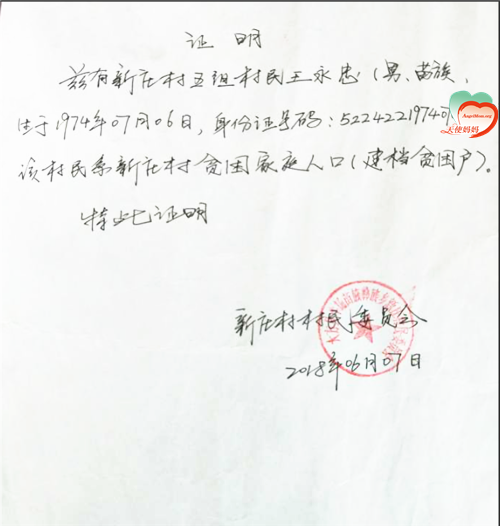 证 明
兹有新庄村五组村民王永忠(男、苗族、
生于1974年07月06日,身份证号码:5224221974
该村民系新庄村贫困家庭人口(建档贫困户)。
特此证明
新庄村村民委员会
2018年06月07日
天使妈妈
Angelmom.org